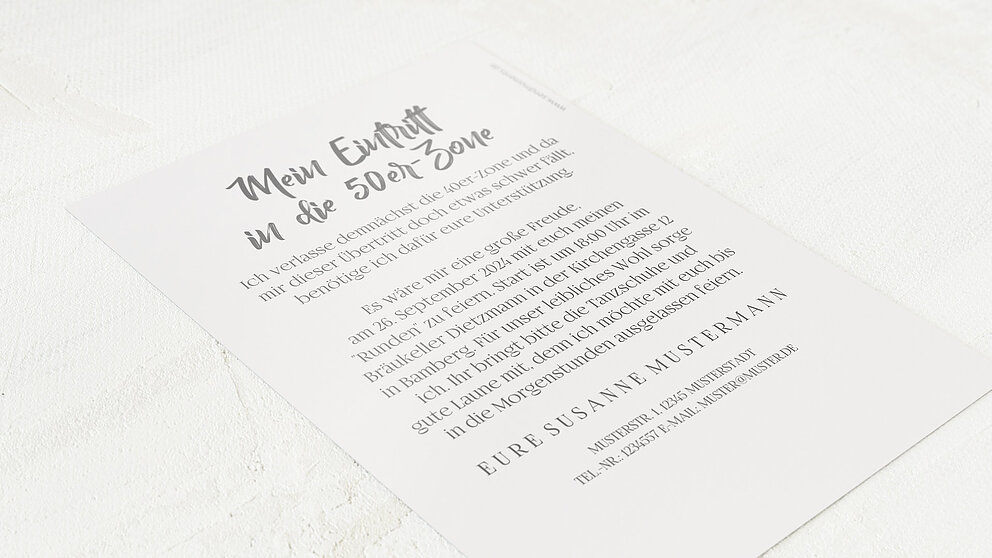 Mein Eintritt
in die 50er-Zone
Ich verlasse demnächst die 40er-Zone und da
mir dieser Übertritt doch etwas schwer fällt,
benötige ich dafür eure Unterstützung.
Es wäre mir eine große Freude,
am 26. September 2024 mit euch meinen
"Runden" zu feiern. Start ist um 18:00 Uhr im
Bräukeller Dietzmann in der Kirchengasse 12
in Bamberg. Für unser leibliches Wohl sorge
ich. Ihr bringt bitte die Tanzschuhe und
gute Laune mit, denn ich möchte mit euch bis
in die Morgenstunden ausgelassen feiern.
EURE SUSANNE MUSTERMANN
MUSTERSTR. 1, 12345 MUSTERSTADT
TEL.-NR.: 1234557 E-MAIL: MUSTER@MUSTER.DE